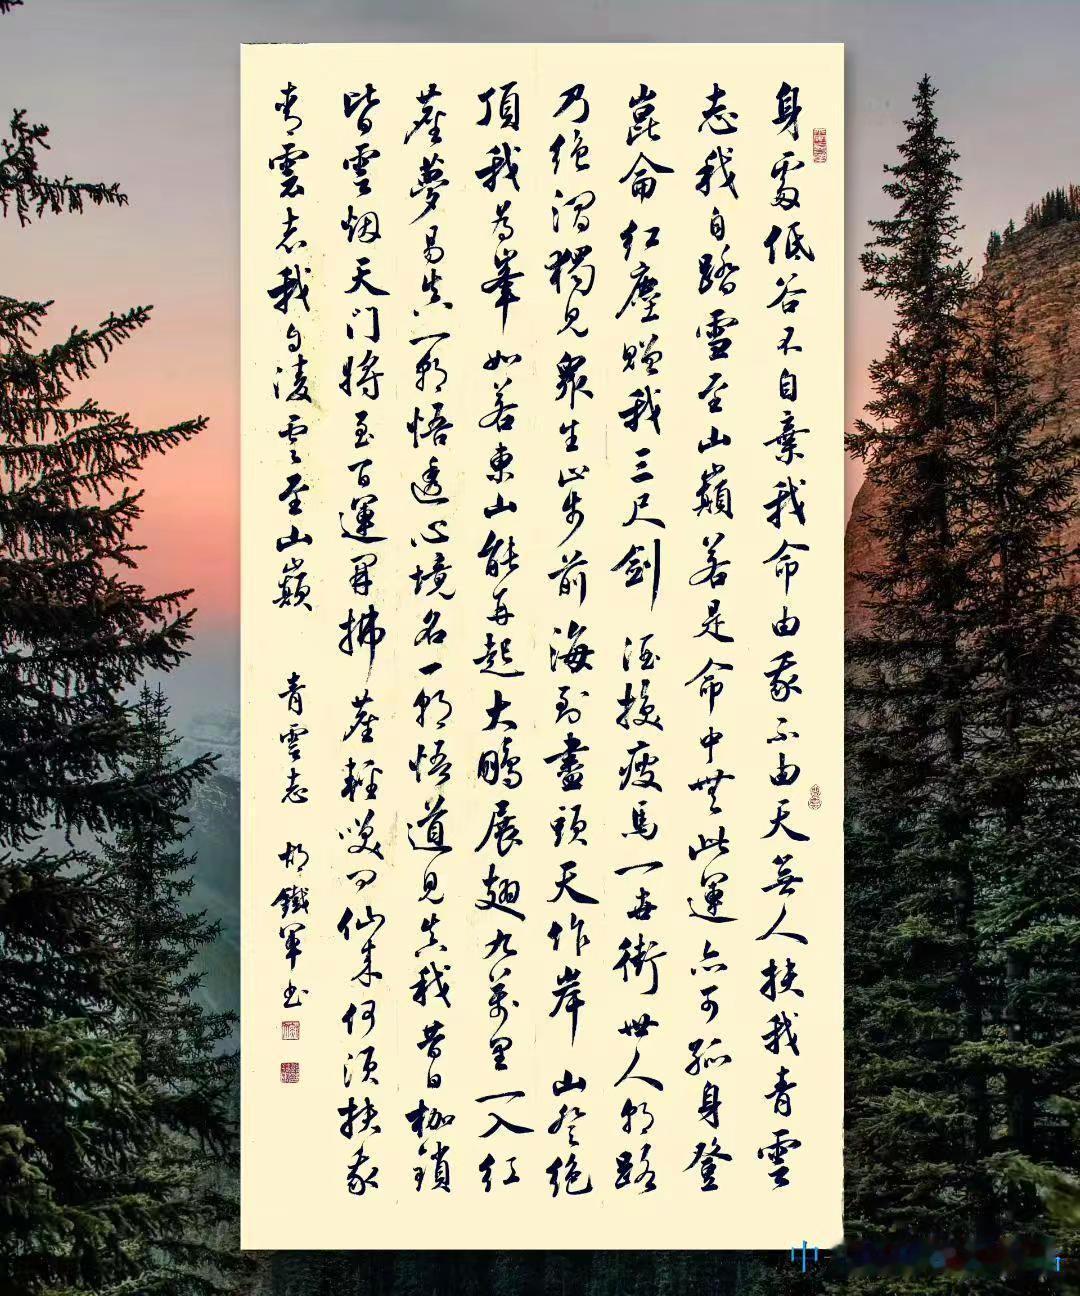 身處低谷不自棄我命由我不由天無人扶我青雲
志我自踏雪至山巔若是命中無此運亦可孤身登
崑侖紅塵贈我三尺劍 酒瘦馬一街世人路
乃絕澗獨見眾生止步前 海到盡頭天作岸 山登絕
頂我為峯 如若東山能再起大鵬展翅九萬里一入紅
塵夢易真一朝悟透心境名一朝悟道見真我昔日枷鎖
皆雲烟天門將至百運開拂塵輕笑問仙來何須扶我
青雲志我自凌雲至山巔 青雲志 胡鐵軍书
中